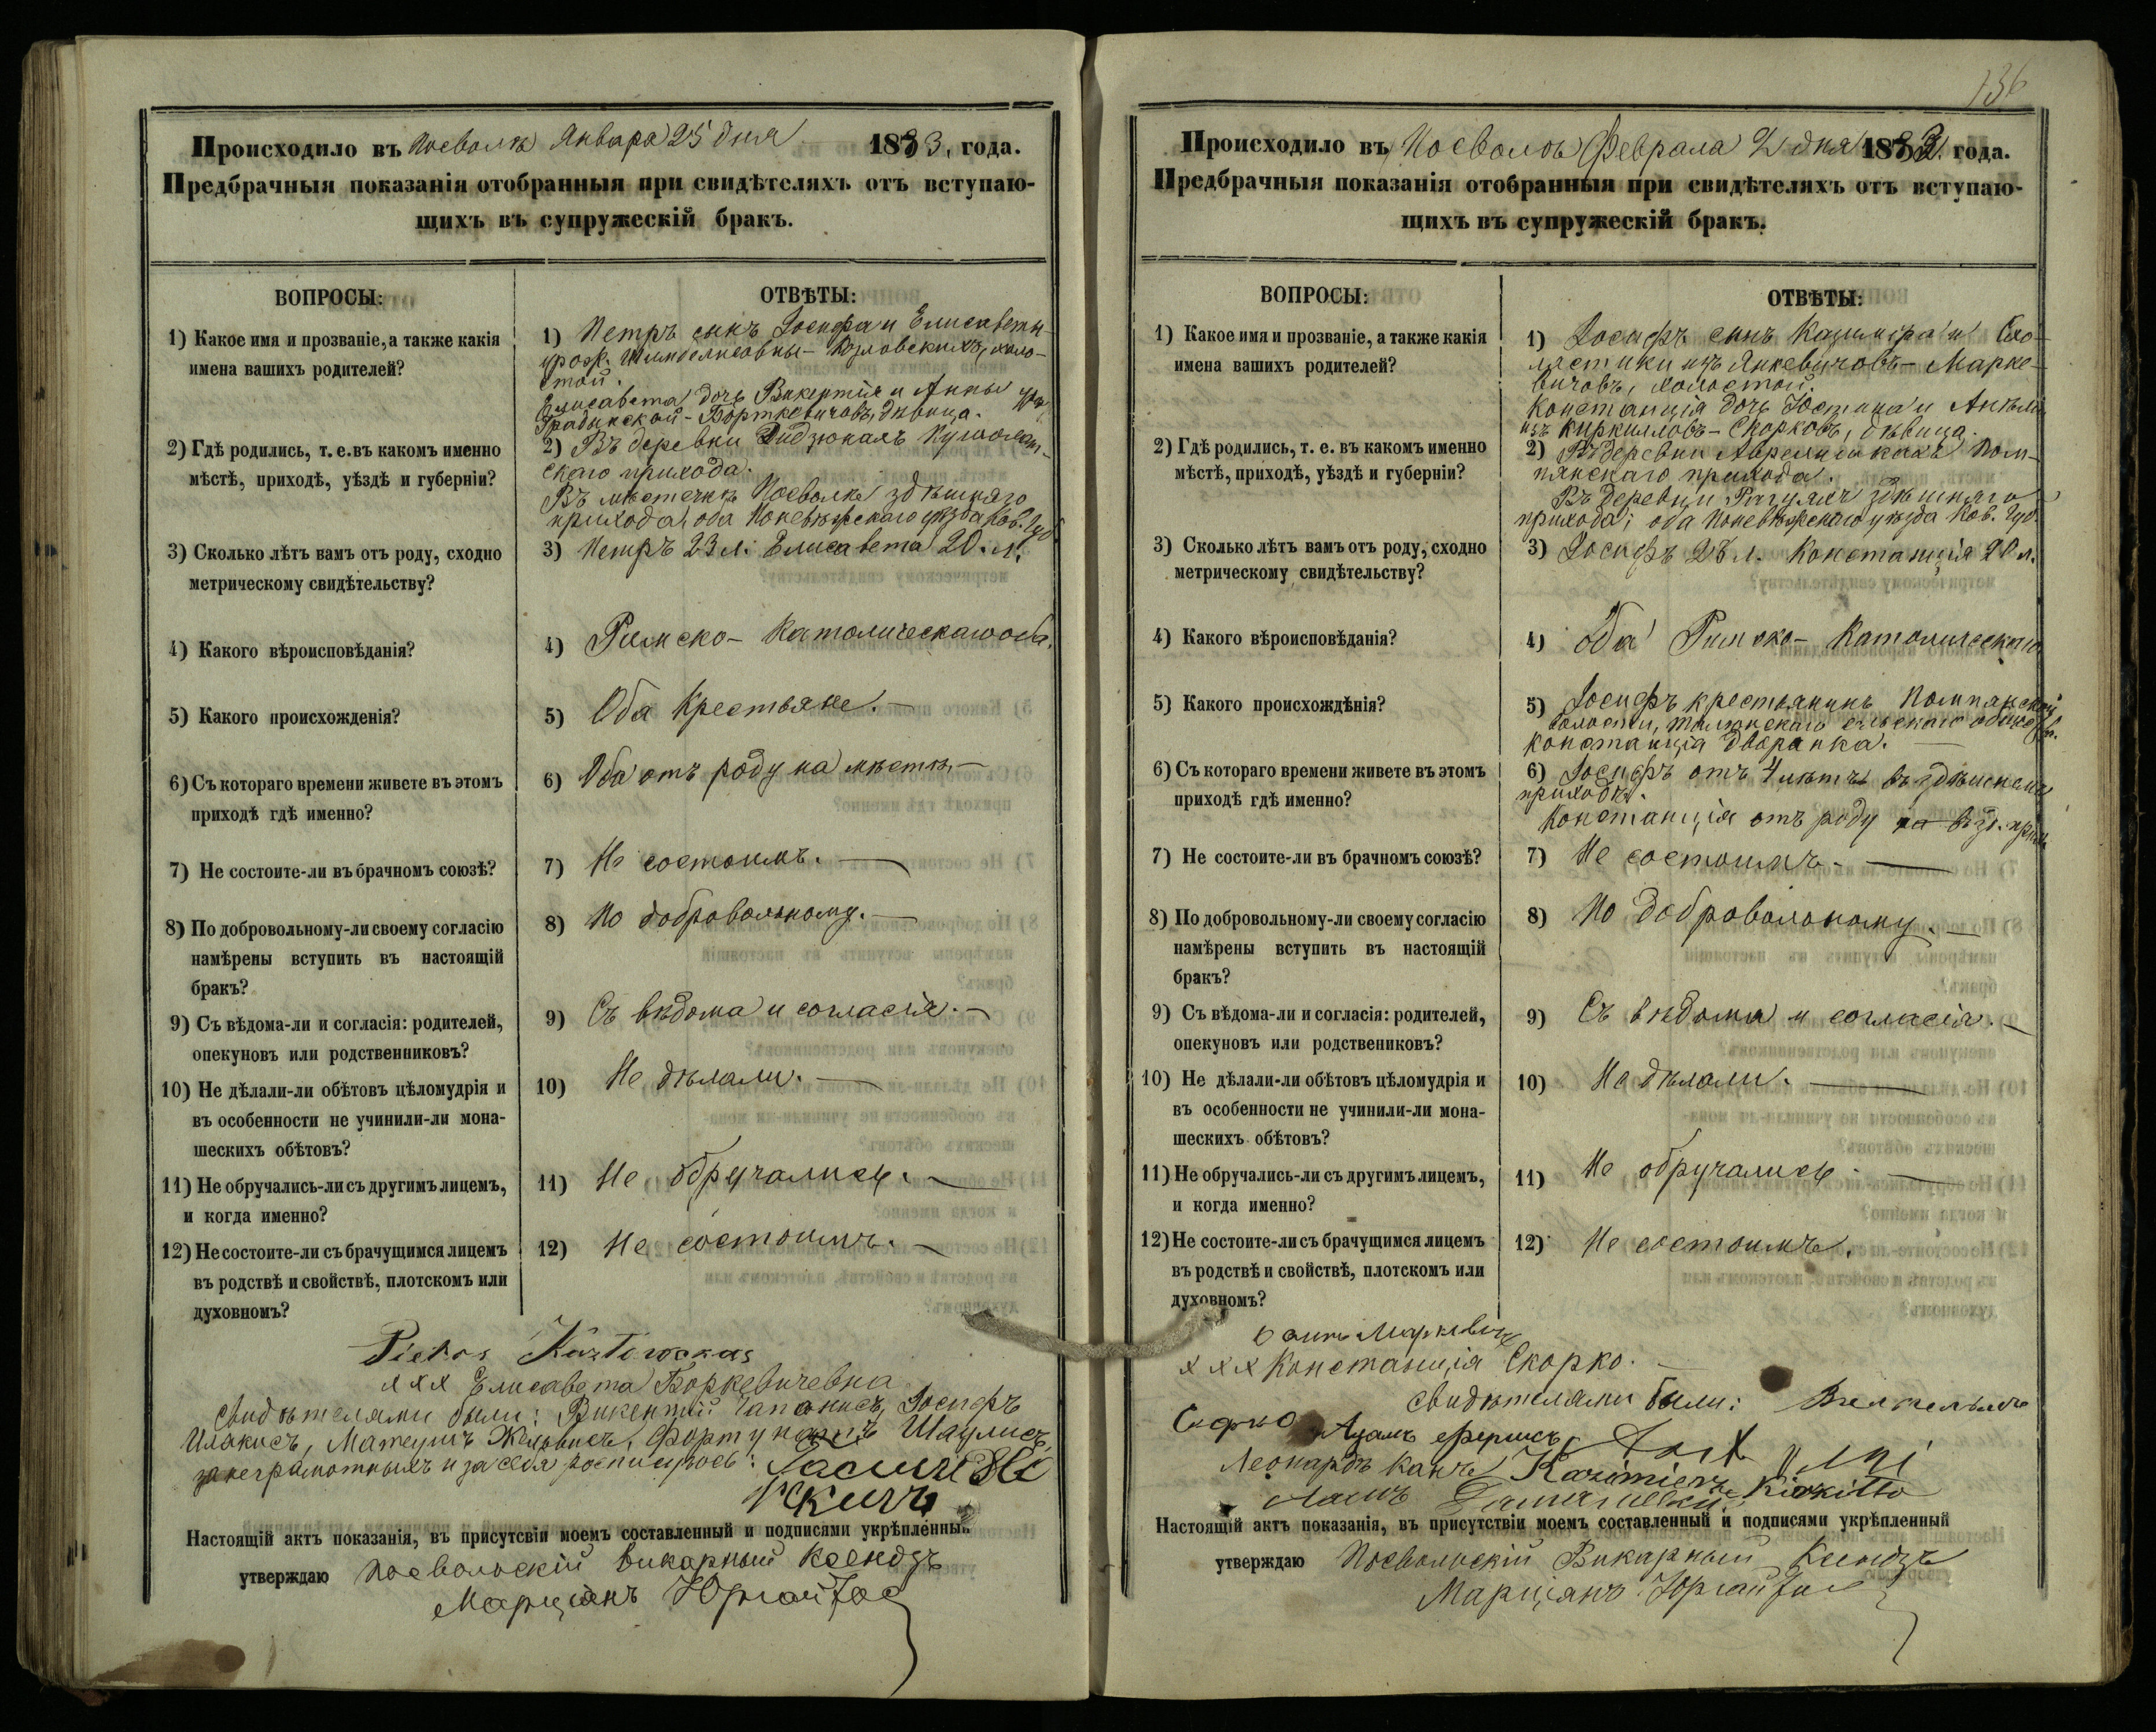 Происходило въ Посволѣ Января 25 дня 1883, года.
Предбрачныя показанія отобранныя при свидѣтеляхъ отъ вступаю-
щихъ въ супружескій бракъ.
ВОПРОСЫ:
ОТВѢТЫ:
1) Какое имя и прозваніе, а также какія
имена вашихъ родителей?
1) Петръ сынъ Іосифа и Елисаветы
урож. Козловскихъ, холо-
стой.
Елисавета дочь Викентія и Анны ур.
Градынской - Борткевичовъ, дѣвица.
2) Гдѣ родились, т. е. въ какомъ именно
мѣстѣ, приходѣ, уѣздѣ и губерніи?
2) Въ деревни
скаго прихода.
Въ мѣстечкѣ Посволѣ здѣшняго
прихода, оба Поневѣжскаго уѣзда Ков. Губ.
3) Сколько лѣтъ вамъ отъ роду, сходно
метрическому свидѣтельству?
3) Петръ 23 л. Елисавета 20 л.
4) Какого вѣроисповѣданія?
4) Римско-Католическаго оба.
5) Какого происхожденія?
5) Оба Крестьяне.
6) Съ котораго времени живете въ этомъ
приходѣ гдѣ именно?
6) Оба отъ роду на мѣстѣ.
7) Не состоите-ли въ брачномъ союзѣ?
7) Не состоимъ.
8) По добровольному-ли своему согласію
намѣрены вступить въ настоящій
бракъ?
8) По добровольному.
9) Съ вѣдома-ли и согласія: родителей,
опекуновъ или родственниковъ?
9) Съ вѣдома и согласія.
10) Не дѣлали-ли обѣтовъ цѣломудрія и
въ особенности не учинили-ли мона-
шескихъ обѣтовъ?
10) Не дѣлали.
11) Не обручались-ли съ другимъ лицемъ,
и когда именно?
11) Не обручались.
12) Не состоите-ли съ брачущимся лицемъ
въ родствѣ и свойствѣ, плотскомъ или
духовномъ?
12) Не состоимъ.
Petras Kozlowskas
ххх Елисавета Боркевичевна
Свидѣтелями были: Викентій Іосифъ
Матеушъ Фортунатъ Шаулисъ,
за неграмотныхъ и за себя росписуюсь:
Настоящій актъ показанія, въ присутсвіи моемъ составленный и подписями укрѣпленный
утверждаю Посвольскій Викарный Ксендзъ
Марціянъ Юргайтис
136
Происходило въ Посволѣ Февраля 2 дня 1883 года.
Предбрачныя показанія отобранныя при свидѣтеляхъ отъ вступаю-
щихъ въ супружескій бракъ.
ВОПРОСЫ:
ОТВѢТЫ:
1) Какое имя и прозваніе, а также какія
имена вашихъ родителей?
1) Іосифъ сынъ Казиміра и Схо-
ластики изъ Янкевичовъ - Марке-
вичовъ, холостой.
Констанція дочь Юстина и Анѣли
изъ Киркилловъ - Скорковъ, дѣвица.
2) Гдѣ родились, т. е. въ какомъ именно
мѣстѣ, приходѣ, уѣздѣ и губерніи?
2) Въ деревни Помп-
янскаго прихода.
Въ деревни Рагуляхъ здѣшняго
прихода; оба Поневѣжскаго уѣзда Ков. Губ.
3) Сколько лѣтъ вамъ отъ роду, сходно
метрическому свидѣтельству?
3) Іосифъ 28 л. Констанція 20 л.
4) Какого вѣроисповѣданія?
4) Оба Римско-Католическаго
5) Какого происхождѣнія?
5) Іосифъ крестьянинъ Помпянской
волости, сельскаго общества.
Констанція дворянка.
6) Съ котораго времени живете въ этомъ
приходѣ гдѣ именно?
6) Іосифъ отъ 4 лѣтъ въ здѣшнемъ
приходѣ.
Констанція отъ роду въ зд. прих.
7) Не состоите-ли въ брачномъ союзѣ?
7) Не состоимъ.
8) По добровольному-ли своему согласію
намѣрены вступить въ настоящій
бракъ?
8) По добровольному.
9) Съ вѣдома-ли и согласія: родителей,
опекуновъ или родствениковъ?
9) Съ вѣдома и согласія.
10) Не дѣлали-ли обѣтовъ цѣломудрія и
въ особенности не учинили-ли мона-
шескихъ обѣтовъ?
10) Не дѣлали.
11) Не обручались-ли съ другимъ лицемъ,
и когда именно?
11) Не обручались.
12) Не состоите-ли съ брачущимся лицемъ
въ родствѣ и свойствѣ, плотскомъ или
духовномъ?
12) Не состоимъ.
Маркевичъ
ххх Констанція Скорко.
Свидѣтелями были:
Адамъ
Леонардъ Kazimierz Kirkiłło
Настоящій актъ показанія, въ присутствіи моемъ составленный и подписями укрѣпленный
утверждаю Посвольскій Викарный Ксендзъ
Марціянъ Юргайтис